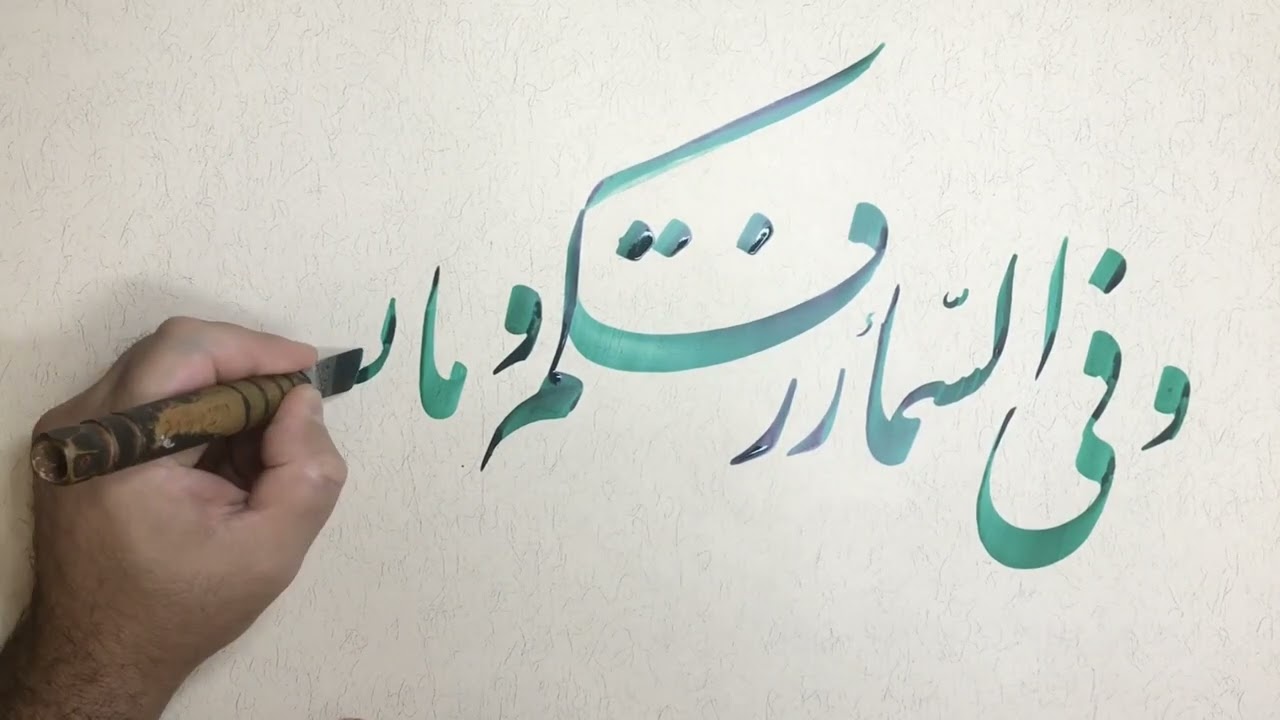 و فی السّمأ رزقکم و ما